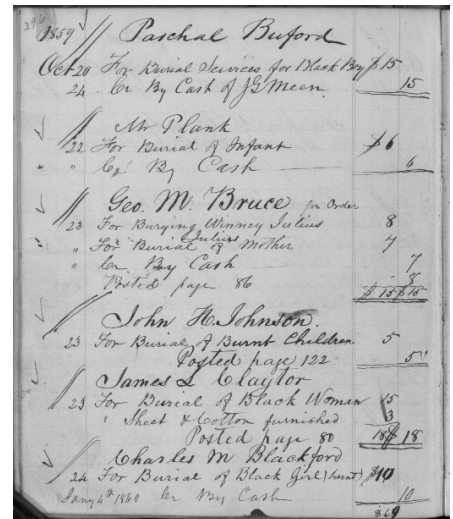 296
1859 Paschal Buford
Oct 20 For Burial Services for Black Boy $15
24 Cr By Cash of J G Meem 15
Mr Plank
22 For Burial of Infant $6
" Cr By Cash 6
Geo. M. Bruce pr Order
23 For Burying Winney Julius 8
" For Burial of Julius Mother 7
" Cr By Cash 7
8
Posted page 86 $15 $15
John H. Johnson.
23 For Burial of Burnt Children. 5
Posted page 122 5
James L Claytor
23 For Burial of Black Woman 15
" Sheet & Cotton furnished 3
Posted page 80 18 $18
Charles M Blackford
24 For Burial of Black Girl (burnt) $10
Jany 4th 1860 Cr By Cash 10
$69